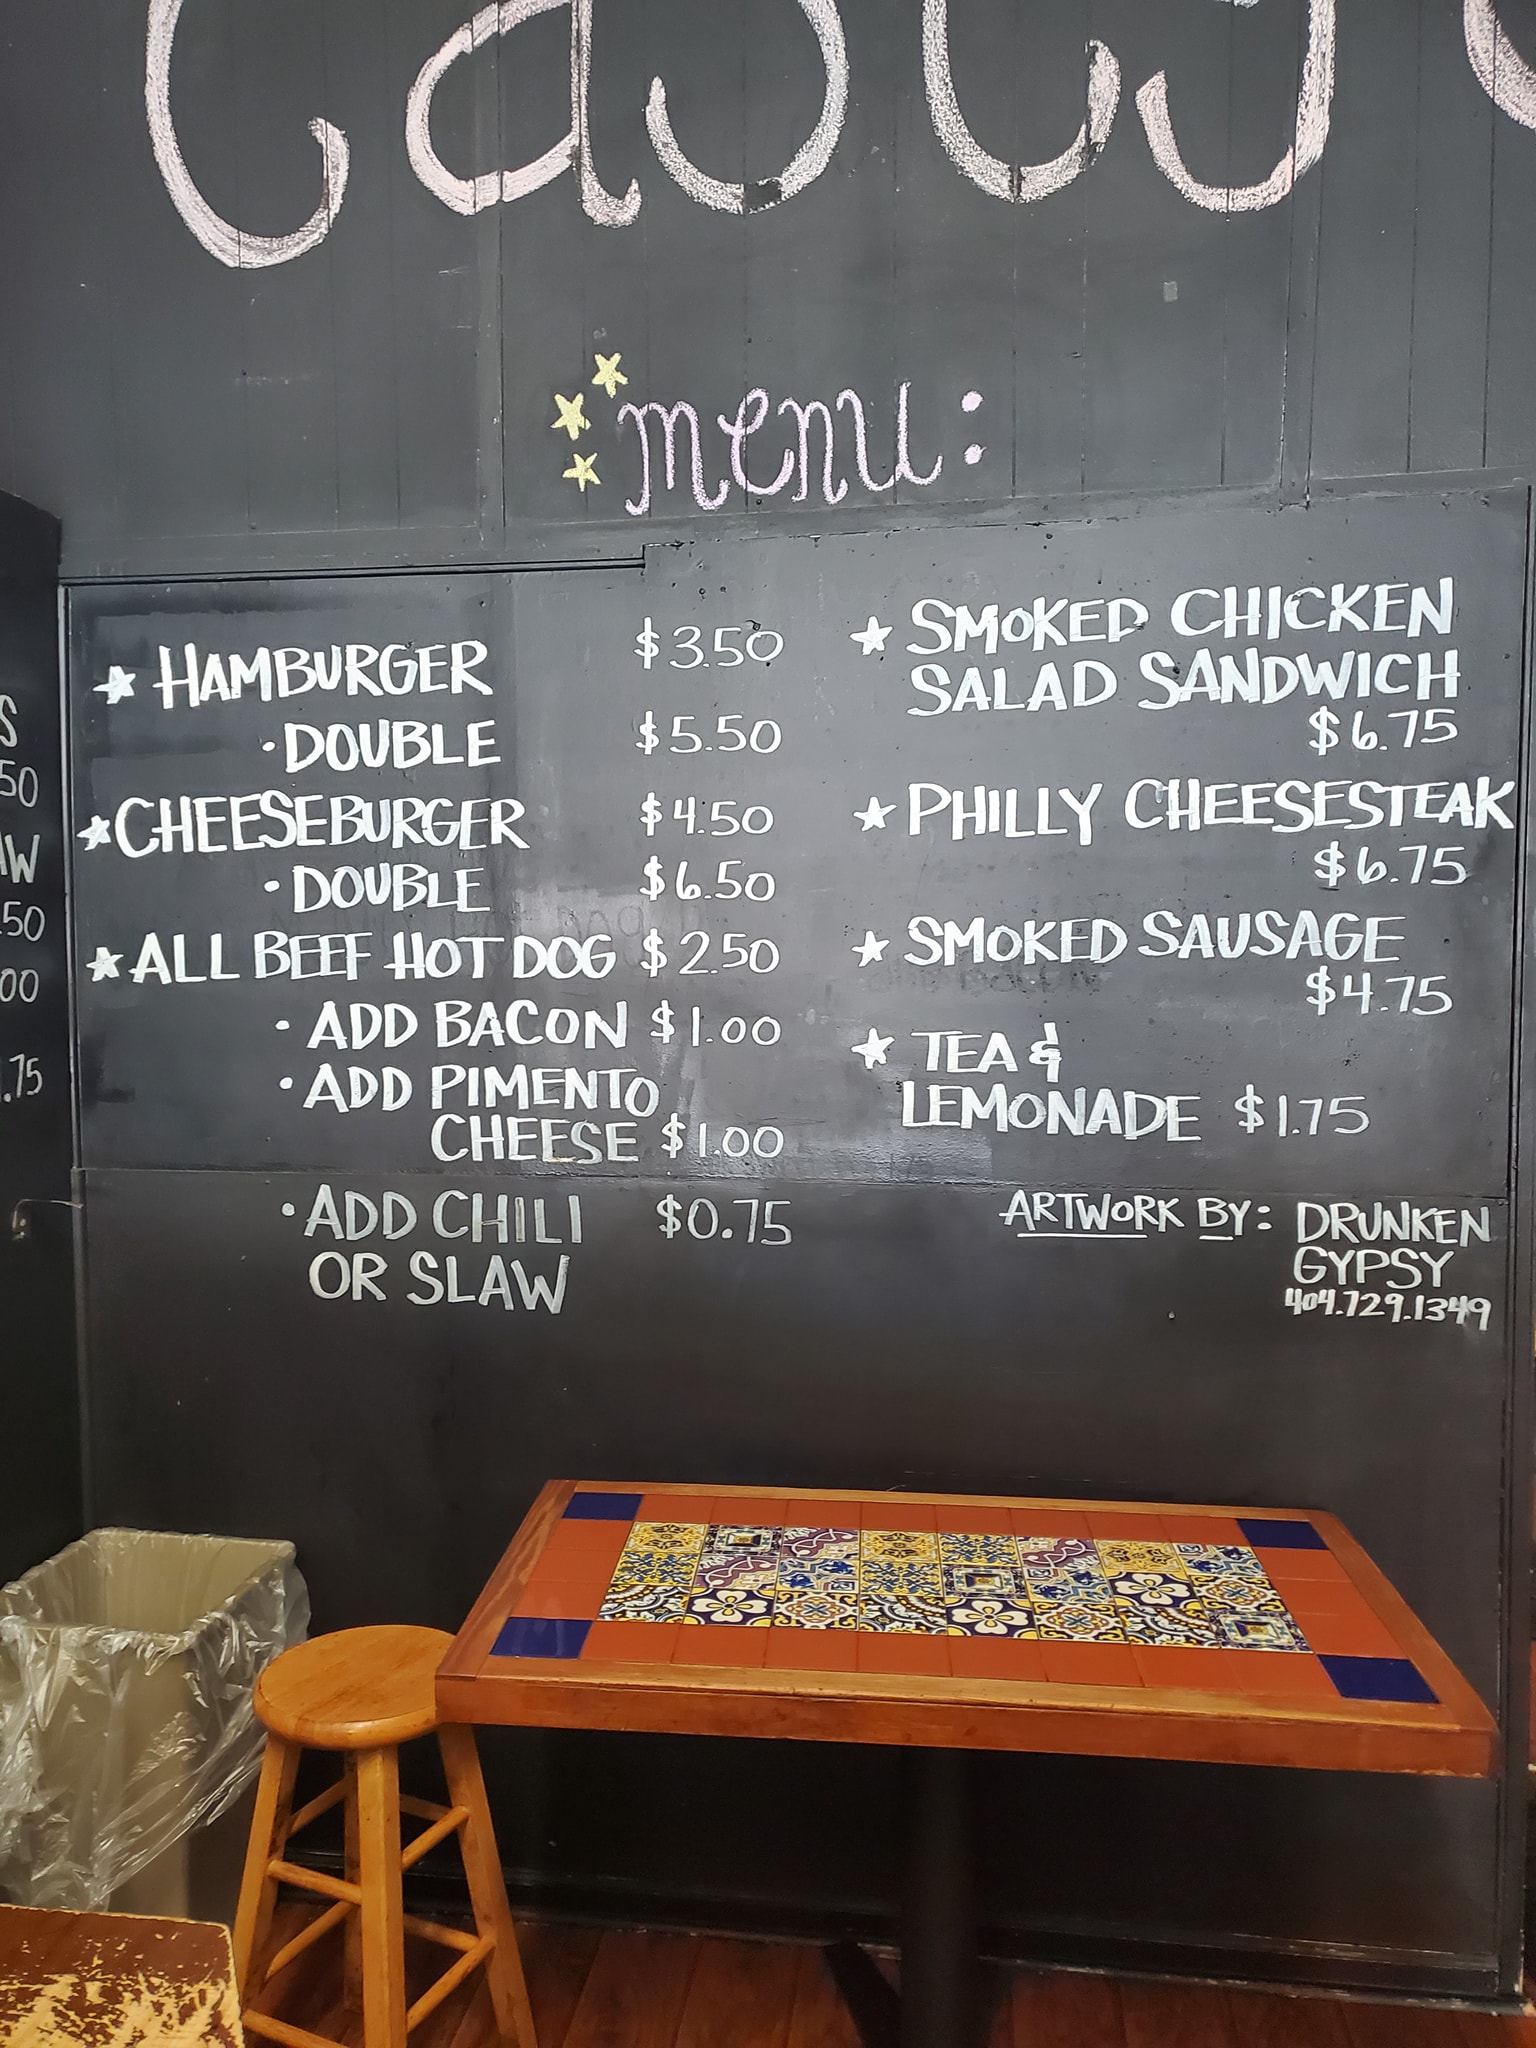 menu:
HAMBURGER $3.50
• DOUBLE $5.50
CHEESEBURGER $4.50
• DOUBLE $6.50
ALL BEEF HOT DOG $2.50
• ADD BACON $1.00
• ADD PIMENTO
CHEESE $1.00
• ADD CHILI $0.75
OR SLAW
SMOKED CHICKEN
SALAD SANDWICH
$6.75
PHILLY CHEESESTEAK
$6.75
SMOKED SAUSAGE
$4.75
TEA &
LEMONADE $1.75
ARTWORK BY: DRUNKEN
GYPSY
404.729.1349